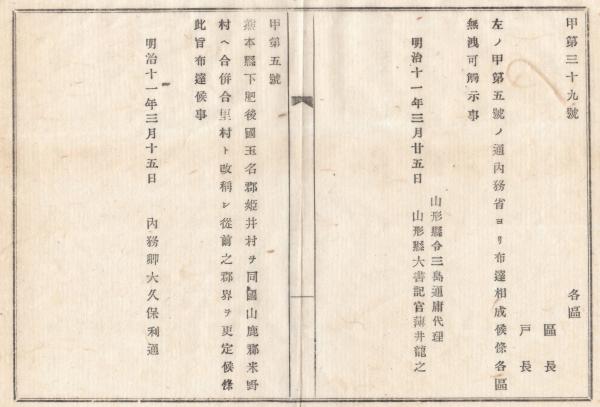 甲第三十九號
各區
區長
戸長
左ノ甲第五號ノ通內務省ヨリ布達相成候條各區
無洩可觸示事
明治十一年三月廿五日
山形縣令三島通庸代理
山形縣大書記官薄井龍之
甲第五號
熊本縣下肥後國玉名郡姫井村ヲ同國山鹿郡米野
村ヘ合併合里村ト改稱シ從前之郡界ヲ更定候條
此旨布達候事
明治十一年三月十五日
內務卿大久保利通